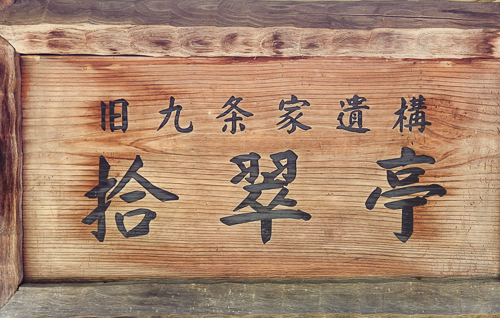 旧九条家遺構
拾翠亭